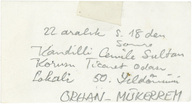 22 aralık S. 18 den
Sonra
Kandilli Cemile Sultan
Korusu Ticaret Odası
Lokali 50. Yıldönümü
ORHAN - MÜKERREM